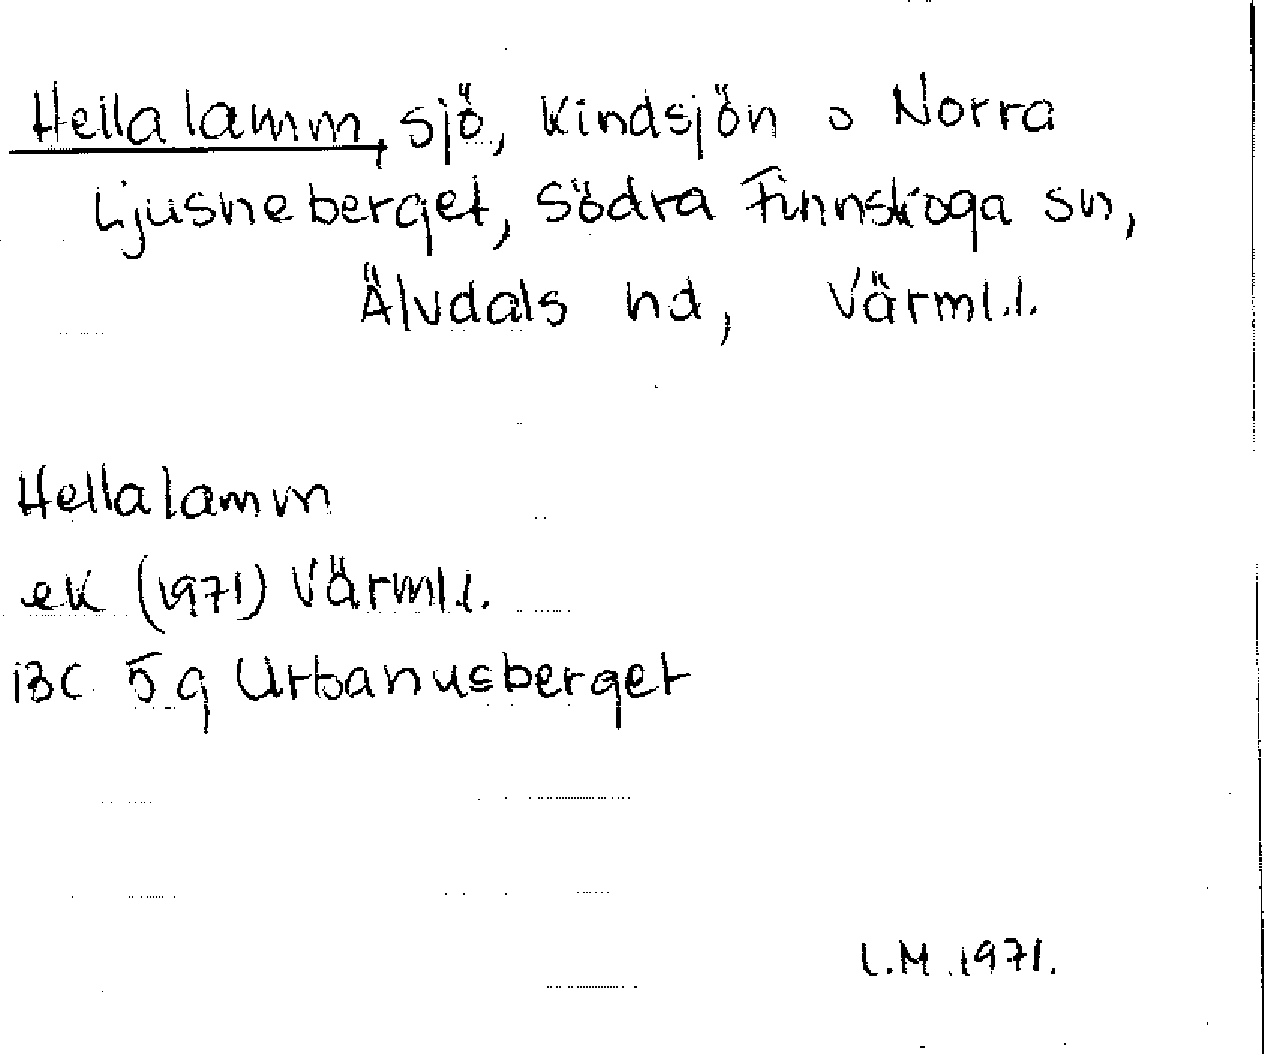 Hellalamm, sjö, Kindsjön o Norra
Ljusneberget, Södra Finnskoga sn,
Älvdals hd, Värml.l.
Hellalamm
ek (1971) Värml.l.
13C 5g Urbanusberget
L.M. 1971.